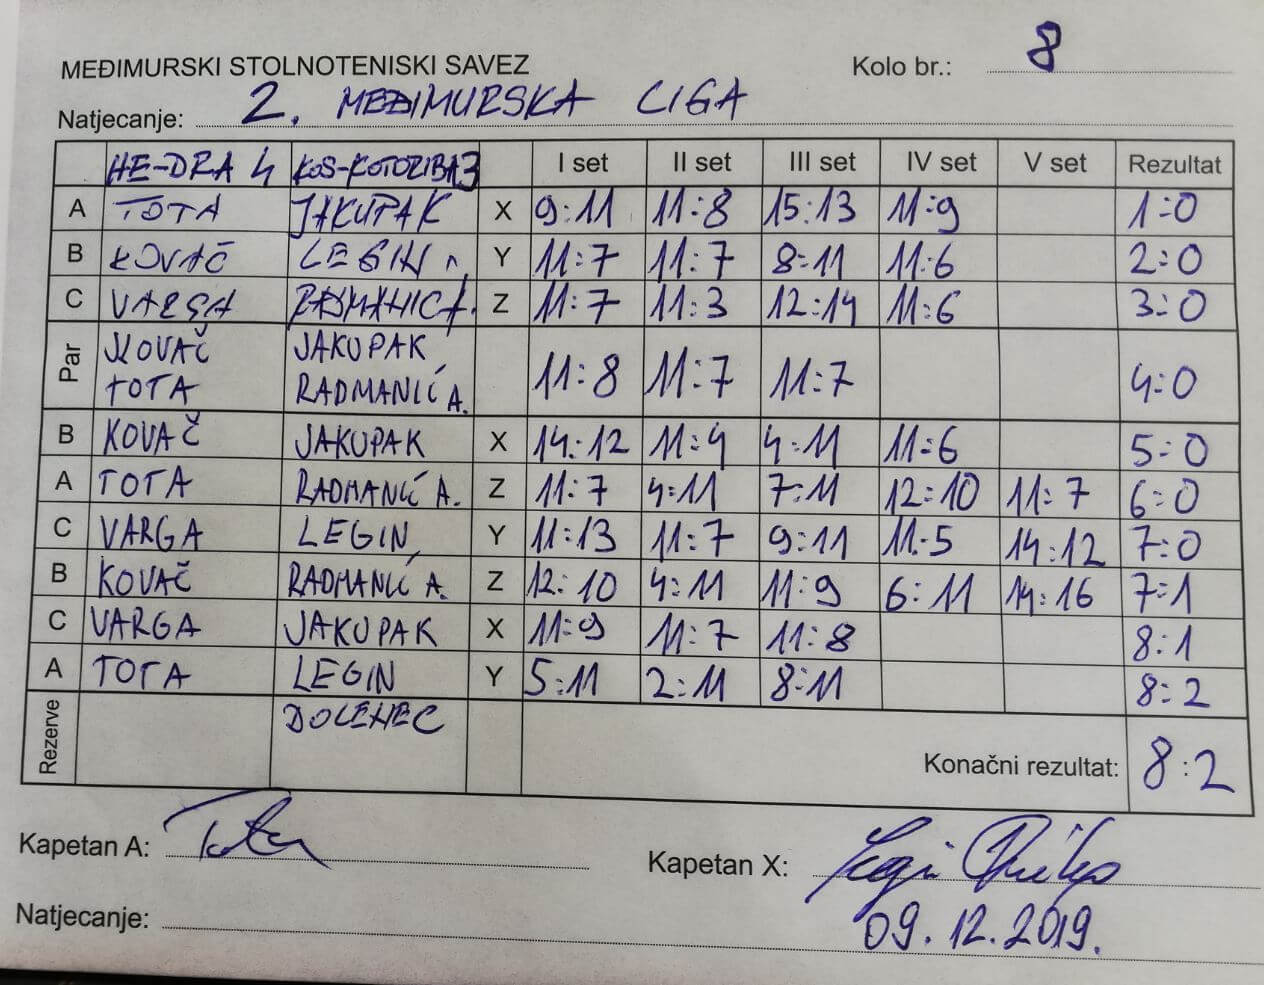 MEĐIMURSKI STOLNOTENISKI SAVEZ Kolo br.: 8
Natjecanje: 2. MEĐIMURSKA LIGA
HE-DRA 4 KOS-KOTORIBA 3 I set II set III set IV set V set Rezultat
A TOTA JAKUPAK X 9:11 11:8 15:13 11:9 1:0
B KOVAČ LEGIN Y 11:7 11:7 8:11 11:6 2:0
C VARGA Z 11:7 11:3 12:14 11:6 3:0
Par KOVAČ JAKUPAK
TOTA RADMANIĆ A. 11:8 11:7 11:7 4:0
B KOVAČ JAKUPAK X 14:12 11:4 4:11 11:6 5:0
A TOTA RADMANIĆ A. Z 11:7 4:11 7:11 12:10 11:7 6:0
C VARGA LEGIN Y 11:13 11:7 9:11 11:5 14:12 7:0
B KOVAČ RADMANIĆ A. Z 12:10 4:11 11:9 6:11 14:16 7:1
C VARGA JAKUPAK X 11:9 11:7 11:8 8:1
A TOTA LEGIN Y 5:11 2:11 8:11 8:2
Rezerve DOLENEC
Konačni rezultat: 8:2
Kapetan A: Tota
Kapetan X:
Natjecanje: 09.12.2019.